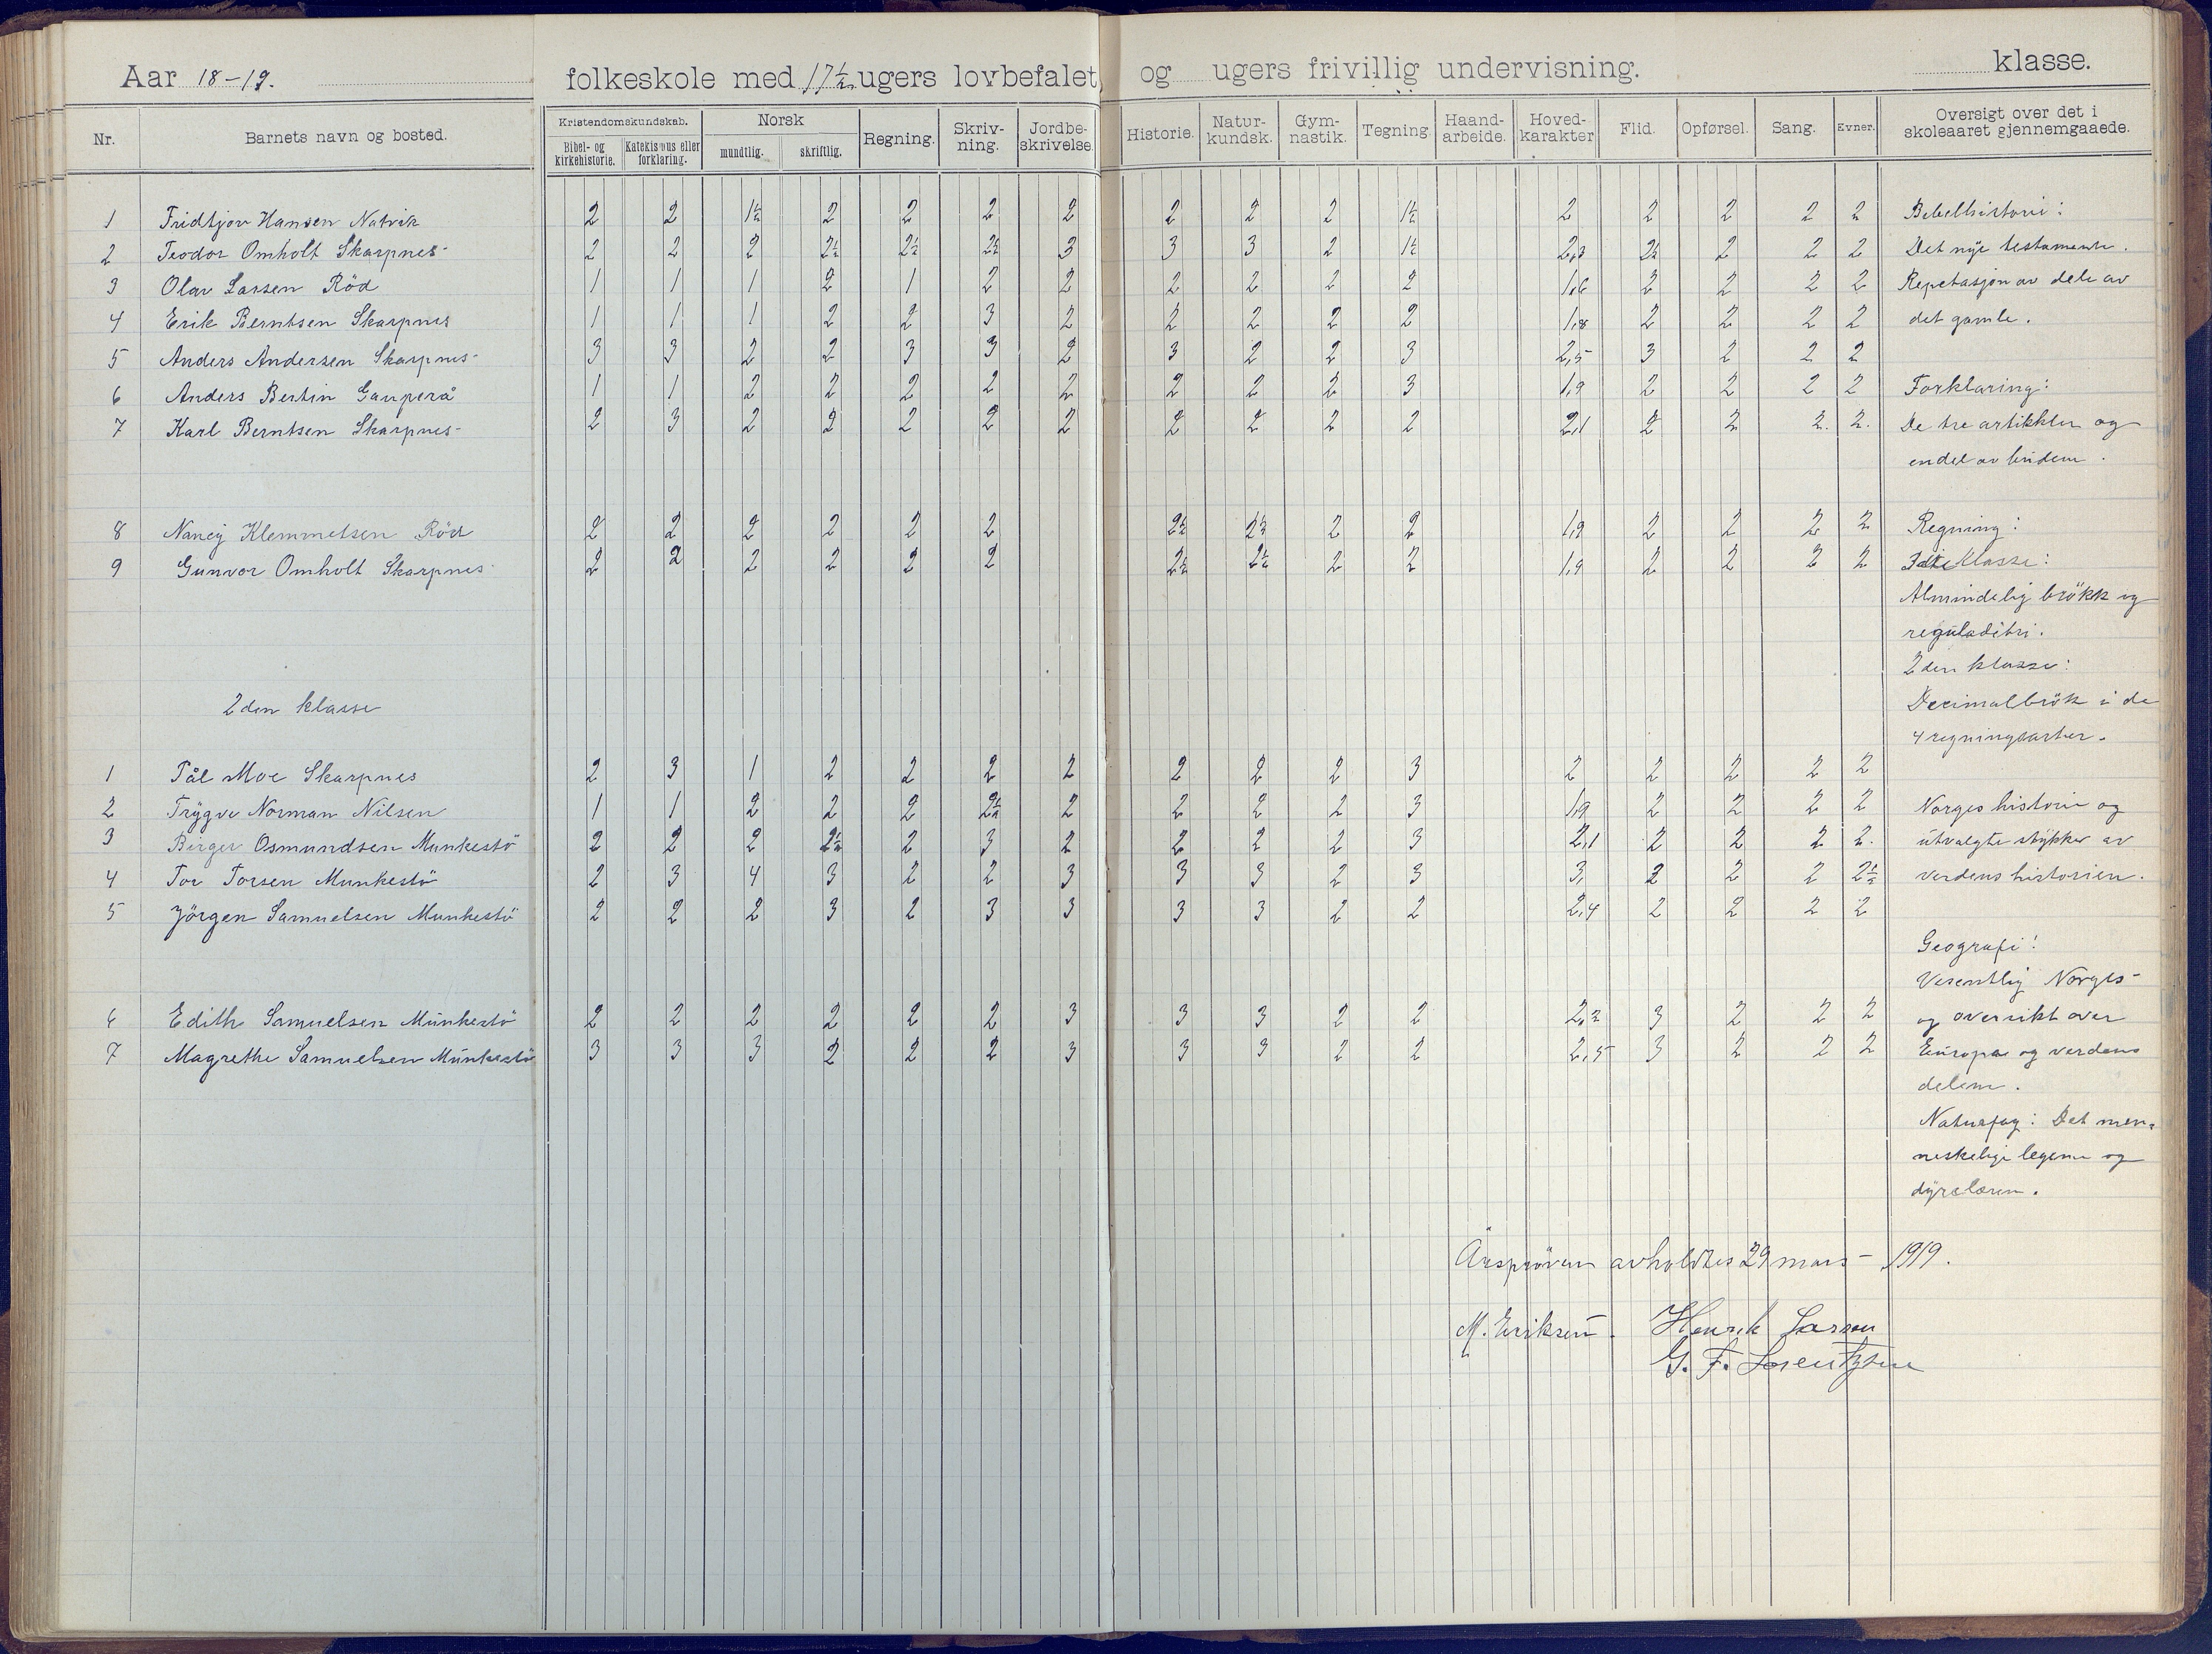 Aar 18-19. folkeskole med 17½ ugers lovbefalet, og ugers frivillig undervisning. klasse.
Nr. Barnets navn og bosted. Kristendomskundskab. Norsk Regning. Skriv-ning. Jordbe-skrivelse. Historie. Natur-kundsk. Gym-nastik. Tegning. Haand-arbeide. Hoved-karakter Flid. Opførsel. Sang. Evner. Oversigt over det i skoleaaret gjennemgaaede.
Bibel- og kirkehistorie. Katekismus eller forklaring. mundtlig. skriftlig.
1 Fridtjov Hansen Natvik 2 2 1½ 2 2 2 2 2 2 2 1½ 2 2 2 2 2 Bibelhistorie:
2 Teodor Omholt Skarpnes 2 2 2 2½ 2½ 2½ 3 3 3 2 1½ 2,3 2½ 2 2 2 Det nye testamente.
3 Olav Larsen Röd 1 1 1 2 1 2 2 2 2 2 2 1,6 2 2 2 2 Repetasjon av dele av
4 Erik Berntsen Skarpnes 1 1 1 2 2 3 2 2 2 2 2 1,8 2 2 2 2 det gamle.
5 Anders Andersen Skarpnes 3 3 2 2 3 3 2 3 2 2 3 2,5 3 2 2 2
6 Anders Bertin Gauperå 1 1 2 2 2 2 2 2 2 2 3 1,9 2 2 2 2 Forklaring:
7 Karl Berntsen Skarpnes 2 3 2 2 2 2 2 2 2 2 2 2,1 2 2 2. 2. De tre artikkler og
endel av budene.
8 Nancy Klemmetsen Röd 2 2 2 2 2 2 2½ 2½ 2 2 1,9 2 2 2 2 Regning:
9 Gunvor Omholt Skarpnes 2 2 2 2 2 2 2½ 2½ 2 2 1,9 2 2 2 2 klasse:
Almindelig brökk og
reguladetri.
2den klasse:
2den klasse Decimalbrök i de
4 regningsarter.
1 Pål Moe Skarpnes 2 3 1 2 2 2 2 2 2 2 3 2 2 2 2 2
2 Trygve Norman Nilsen 1 1 2 2 2 2½ 2 2 2 2 3 1,9 2 2 2 2 Norges historie og
3 Birger Osmundsen Munkestö 2 2 2 2½ 2 3 2 2 2 2 3 2,1 2 2 2 2. utvalgte stykker av
4 Tor Torsen Munkestö 2 3 4 3 2 2 3 3 3 2 3 3, 2 2 2 2½ verdenshistorien.
5 Jörgen Samuelsen Munkestö 2 2 2 3 2 3 3 3 3 2 2 2,4 2 2 2 2
Geografi:
Vesentlig Norges-
6 Edith Samuelsen Munkestö 2 2 2 2 2 2 3 3 3 2 2 2,2 3 2 2 2 og oversikt over
7 Magrethe Samuelsen Munkestö 3 3 3 2 2 2 3 3 3 2 2 2,5 3 2 2 2 Europa og verdens
delene.
Naturfag: Det men-
neskelige legeme og
dyrelæren.
Årspröven avholdtes 29 mars - 1919.
M. Eriksen. Henrik Larsen
G. F. Lorentzen